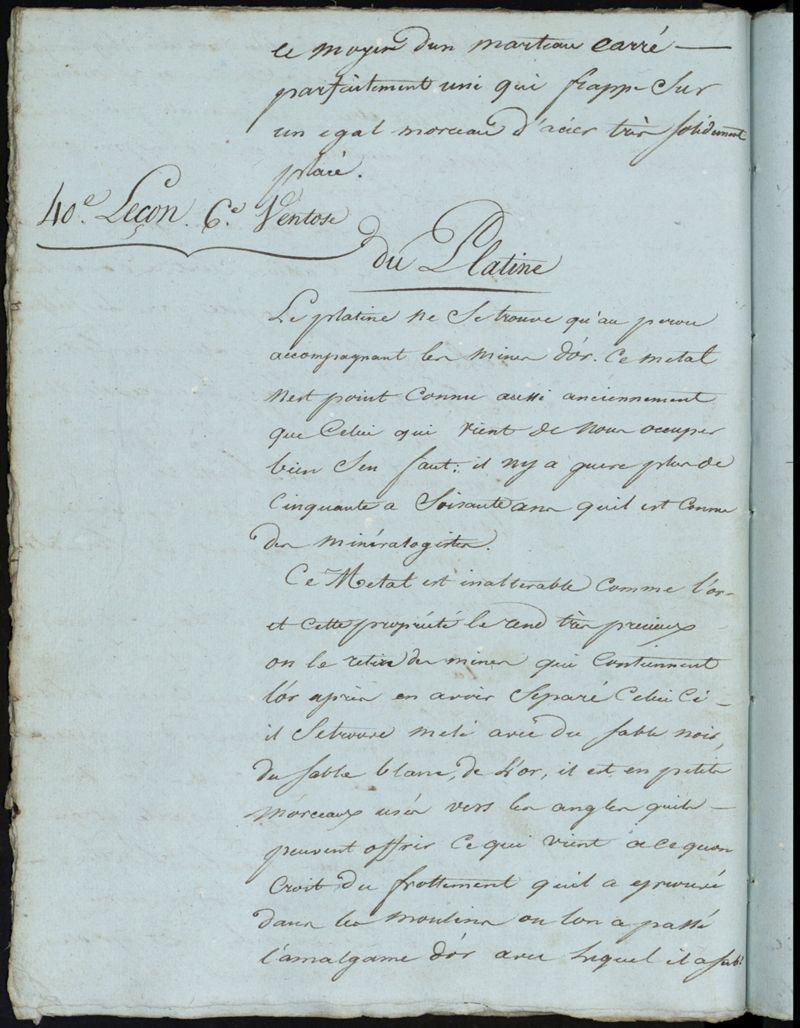 le moyen d'un marteau carré —
parfaitement uni qui frappe sur
un egal morceau d'acier très solidement
placé.
40.e Leçon. 6.e Ventose
du Platine
Le platine ne se trouve qu'au perou
accompagnant les mines d'or. Ce metal
nest point connu aussi anciennement
que Celui qui vient de nous occuper
bien sen faut: il ny a guere plus de
Cinquante a Soisante ans quil est connu
des minéralogistes.
Ce Metal est inalterable comme l'or
et cette propriété le rend très precieux
on le retire des mines qui Contiennent
l'or après en avoir Separé Celui Ci —
il Setrouve melé avec du sable noir,
du sable blanc, de L'or, il est en petits
morceaux usés vers les angles quils —
peuvent offrir ce qui vient a ce quon
Croit du frottement quil a eprouvé
dans les moulins ou lon a passé
l'amalgame d'or avec lequel il a subi